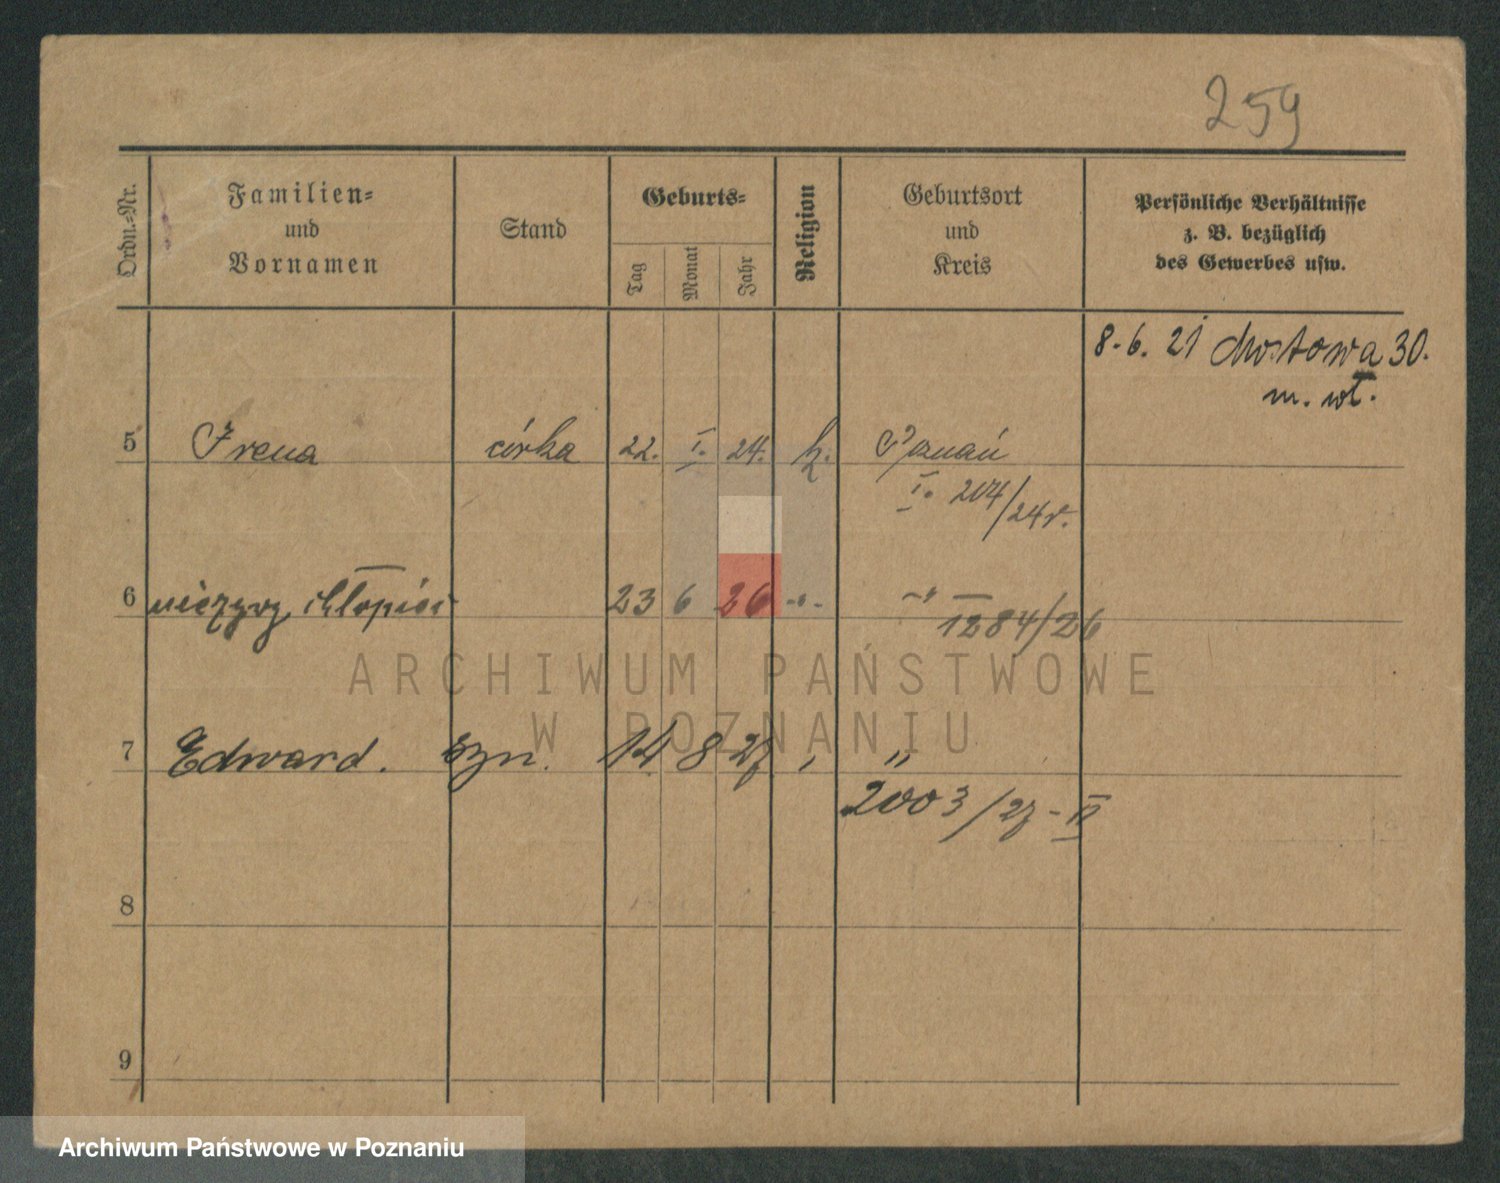 259
Ordn.-Nr.
Familien-
und
Vornamen
Stand
Geburts-
Tag
Monat
Jahr
Religion
Geburtsort
und
Kreis
Persönliche Verhältnisse
z. B. bezüglich
des Gewerbes usw.
8. 6. 21 Mostowa 30.
m. wł.
5 Irena córka 22. I. 24. k. Poznań
I. 204/24r.
6 nieżywy chłopiec 23 6 26 -"- -"-
1284/26
7 Edward. syn. 14 8 27 " "
2003/27-II
8
9
ARCHIWUM PAŃSTWOWE
W POZNANIU
Archiwum Państwowe w Poznaniu